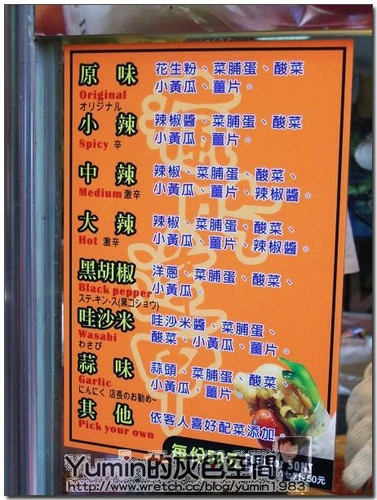 原味 花生粉、菜脯蛋、酸菜
Original 小黃瓜、薑片。
オリジナル
小辣 辣椒醬、菜脯蛋、酸菜
Spicy 辛 小黃瓜、薑片。
中辣 辣椒、菜脯蛋、酸菜、
Medium 激辛 小黃瓜、薑片、辣椒醬。
大辣 辣椒、菜脯蛋、酸菜、
Hot 激辛 小黃瓜、薑片、辣椒醬。
黑胡椒 洋蔥、菜脯蛋、酸菜、
Black pepper 小黃瓜。
ステ-キン-ス(黒コショウ)
哇沙米 哇沙米醬、菜脯蛋、
Wasabi 酸菜、小黃瓜、薑片。
わさび
蒜味 蒜頭、菜脯蛋、酸菜、
Garlic 小黃瓜、薑片。
にんにく 店長のお勧め~
其他 依客人喜好配菜添加。
Pick your own
每份50元
50NT
50元
Yumin的灰色空間
http://www.wretch.cc/blog/yumin1983